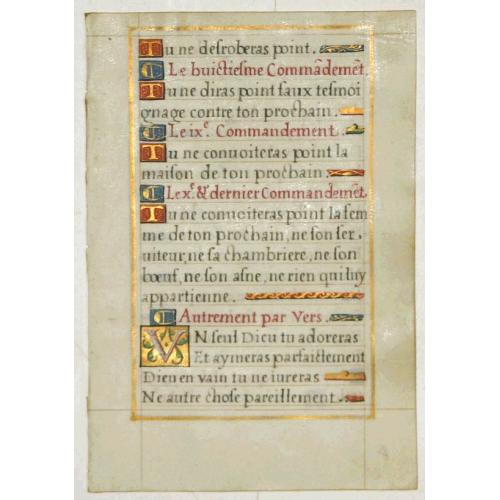 Tu ne desroberas point.
Le huictiesme Commādemēt
Tu ne diras point faux tesmoi
gnage contre ton prochain.
Le ixᵉ. Commandement.
Tu ne conuoiteras point la
maison de ton prochain.
Le xᵉ. & dernier Commandemēt
Tu ne conuoiteras point la fem
me de ton prochain, ne son ser
uiteur, ne sa chambriere, ne son
bœuf, ne son asne, ne rien qui luy
appartienne.
Autrement par Vers.
VN seul Dieu tu adoreras
Et aymeras parfaictement
Dieu en vain tu ne iureras
Ne autre chose pareillement.